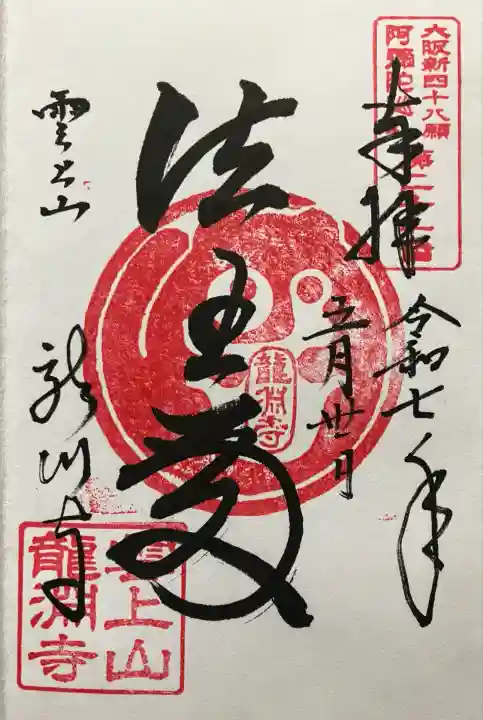 大阪新四十八願
阿彌陀
第二
奉拝
令和七年
五月
法王
龍淵寺
雲上山
龍淵寺
雲上山
龍淵寺